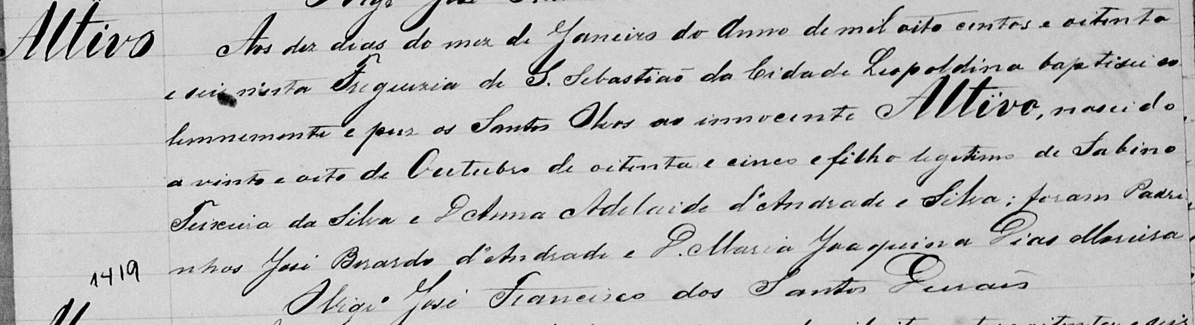 Altivo
Aos dez dias do mez de Janeiro do Anno de mil oito centos e oitenta
e seis nesta Freguezia de S. Sebastiaõ da Cidade Leopoldina baptisei so
lemnemente e puz os Santos Oleos ao innocente Altivo, nascido
a vinte e oito de Outubro de oitenta e cinco e filho legitimo de Sabino
Teixeira da Silva e D. Anna Adelaide d'Andrade e Silva; foram Padri
nhos José Berardo d'Andrade e D. Maria Joaquina Dias Moreira
1419
Vigrº José Francisco dos Santos Duraẽs